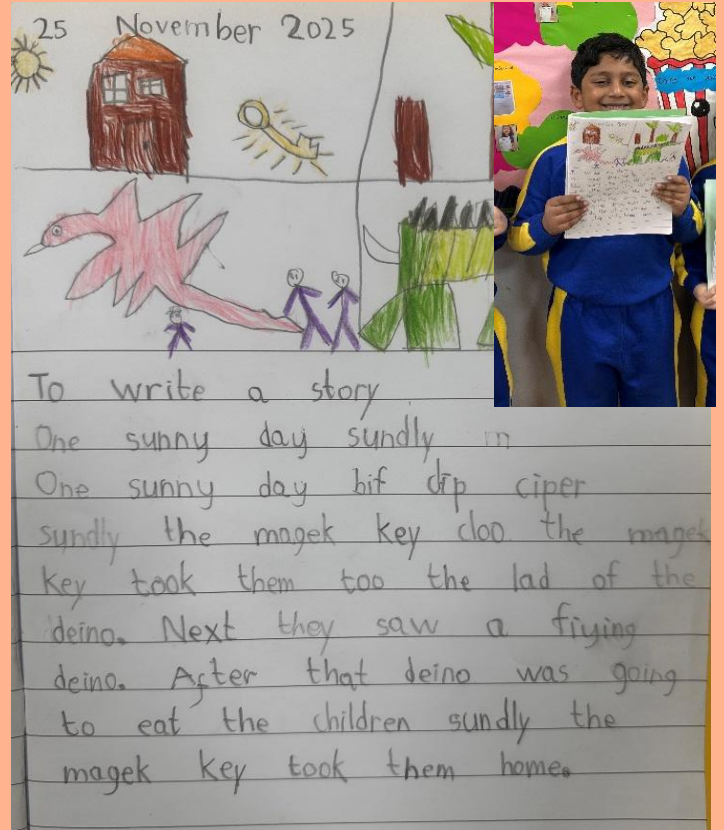 25 November 2025
To write a story
One sunny day sundly m
One sunny day bif dip ciper
sundly the magek key cloo the magek
key took them too the lad of the
deino. Next they saw a fiying
deino. After that deino was going
to eat the children sundly the
magek key took them home.